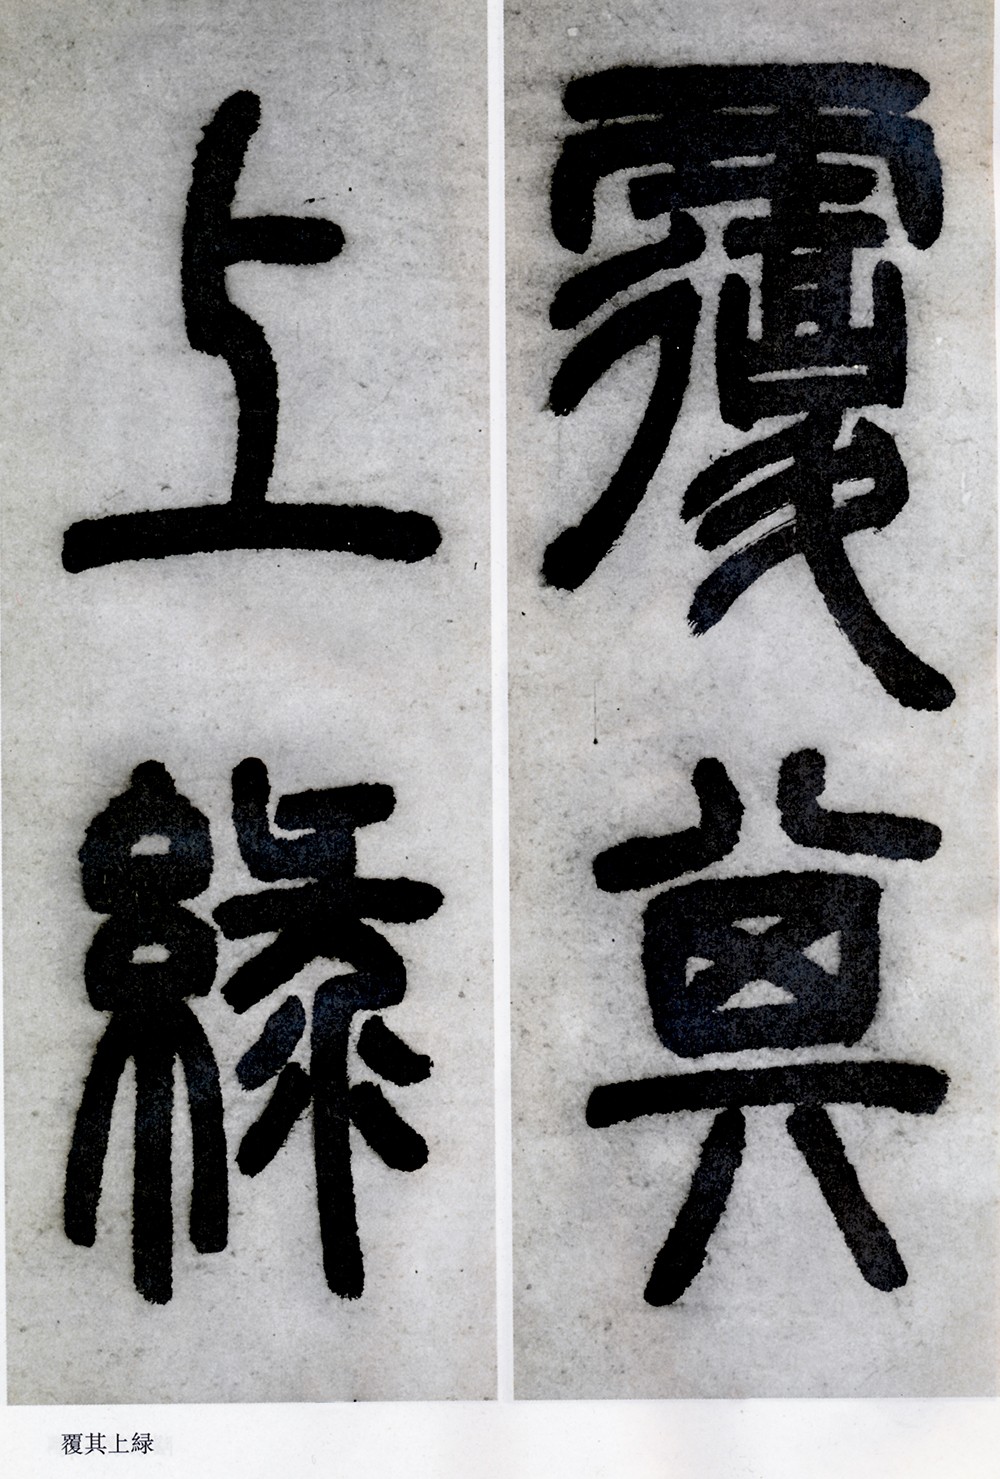 覆其
上緑
覆其上緑